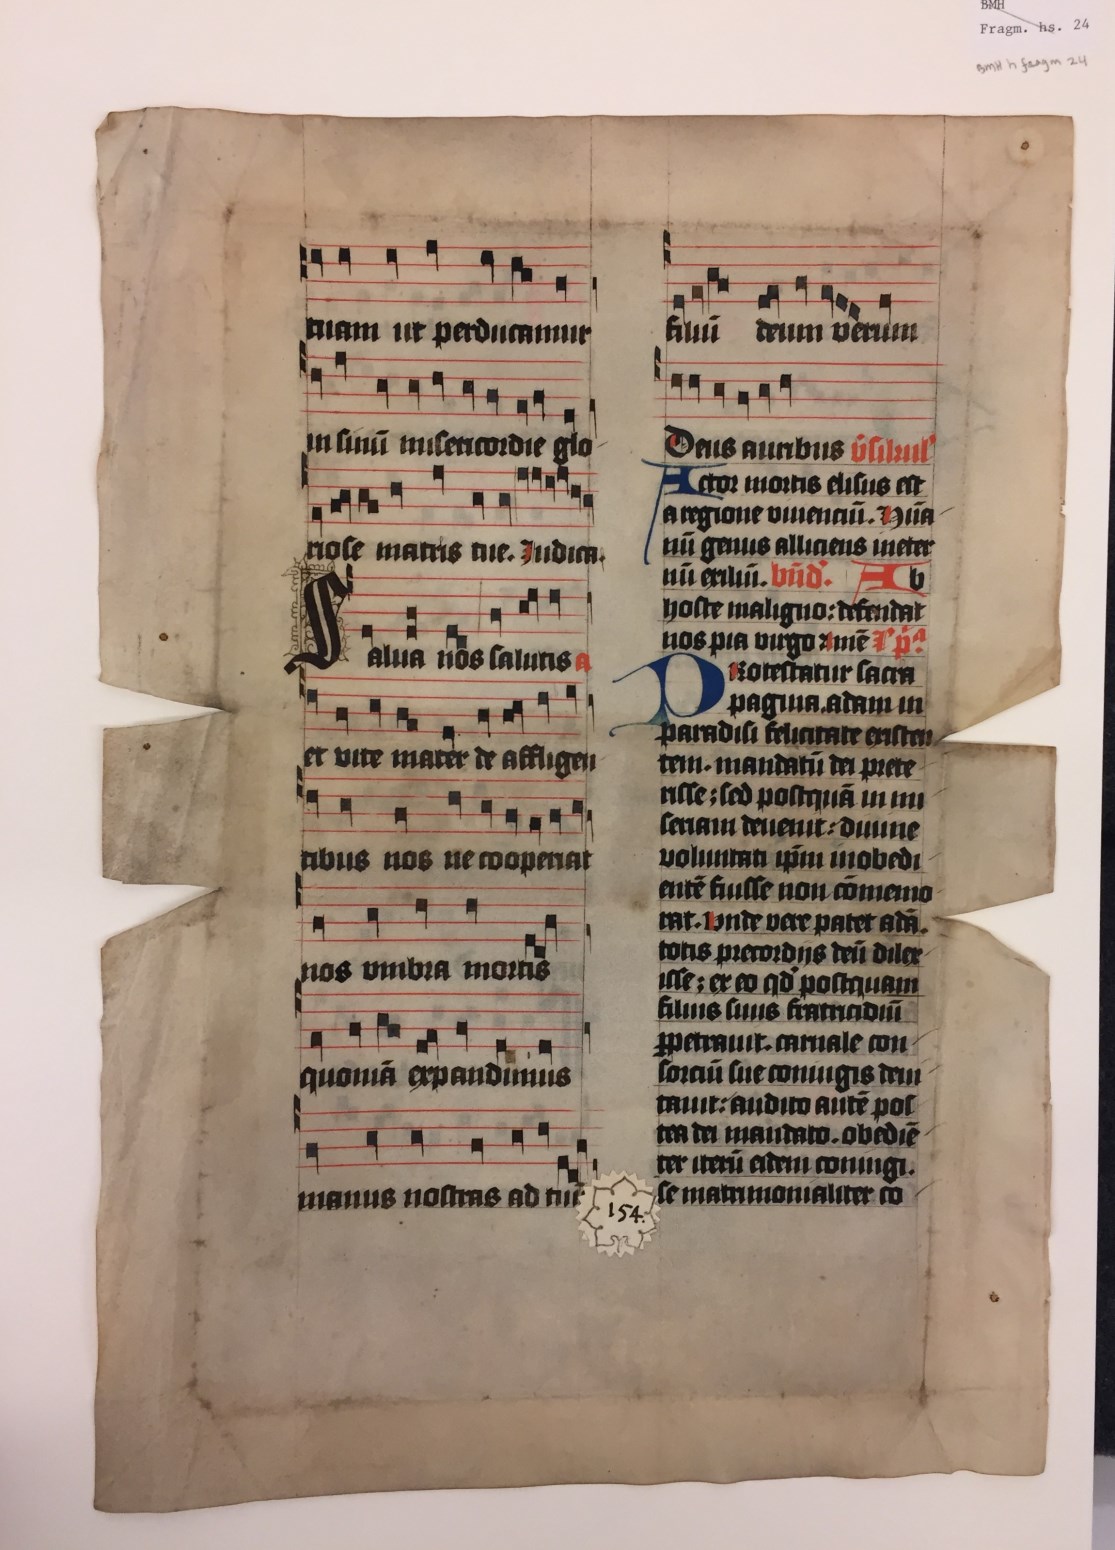 BMH
Fragm. hs. 24
BMH h fragm 24
tuam ut perducamur
in sinū misericordie glo
riose matris tue. Iudica.
Salua nos salutis a
et vite mater de affligen
tibus nos ne cooperiat
nos vmbra mortis
quoniā expandimus
manus nostras ad tuū
154.
filiū deum verum
Deus auribus
Actor mortis elisus est
a regione viuenciū.
nū genus alliciens ineter
nū exiliū. Ab
hoste maligno: defendat
nos pia virgo
PRotestatur sacra
pagina, adam in
paradisi felicitate existen
tem. mandatū dei prete
risse; sed postquā in mi
seriam deuenit: diuine
voluntati ip̄m inobedi
entē fuisse non cōmemo
rat. Vnde vere patet adā.
totis precordijs deū dilex
isse; ex eo qd' postquam
filius suus fratricidiū
ꝑpetrauit. carnale con
sorciū sue coniugis deui
tauit: audito autē pos
tea dei mandato. obediē
ter iterū eidem coniugi.
se matrimonialiter co